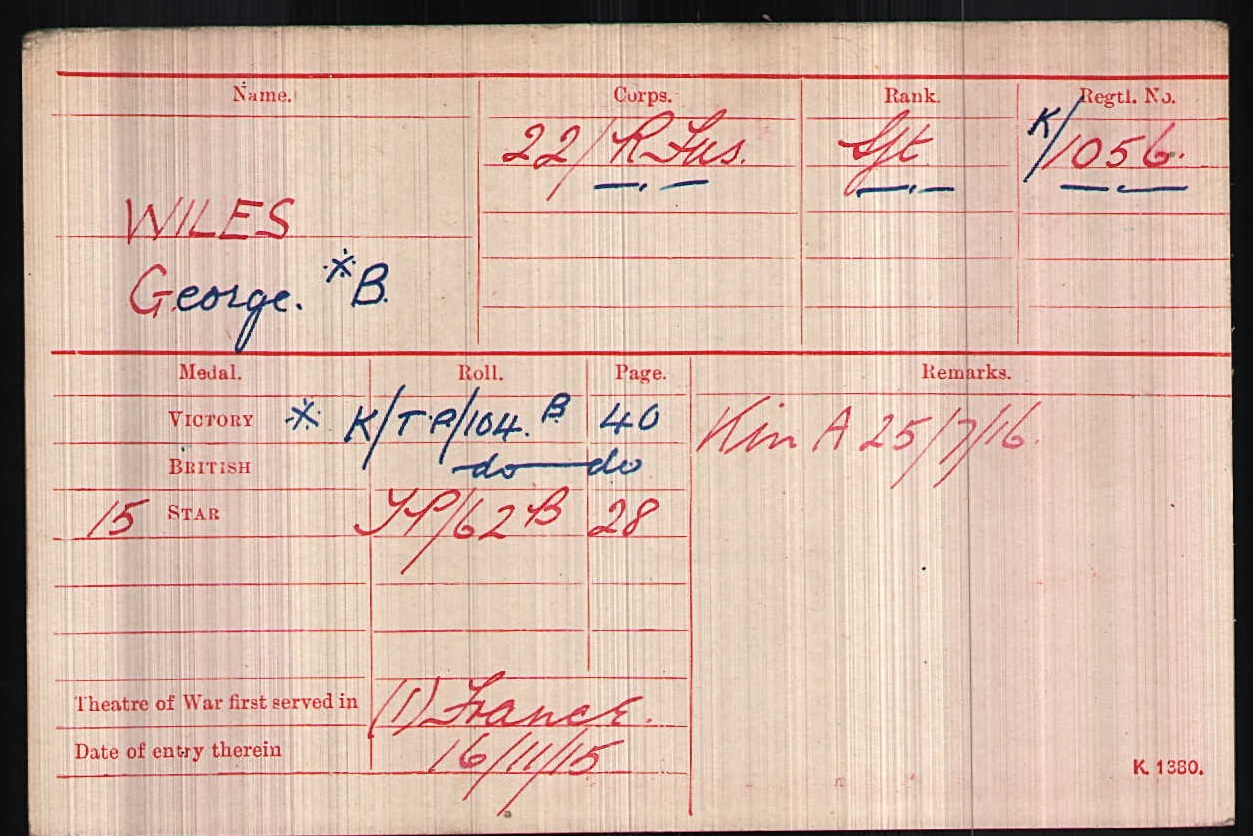 Name. Corps. Rank. Regtl. No.
22/R Fus. Sjt K/1056.
WILES
George. *B.
Medal. Roll. Page. Remarks.
VICTORY * K/TP/104.B 40 Kin A 25/7/16.
BRITISH do do
15 STAR TP/62B 28
Theatre of War first served in (1) France.
Date of entry therein 16/11/15
K. 1380.